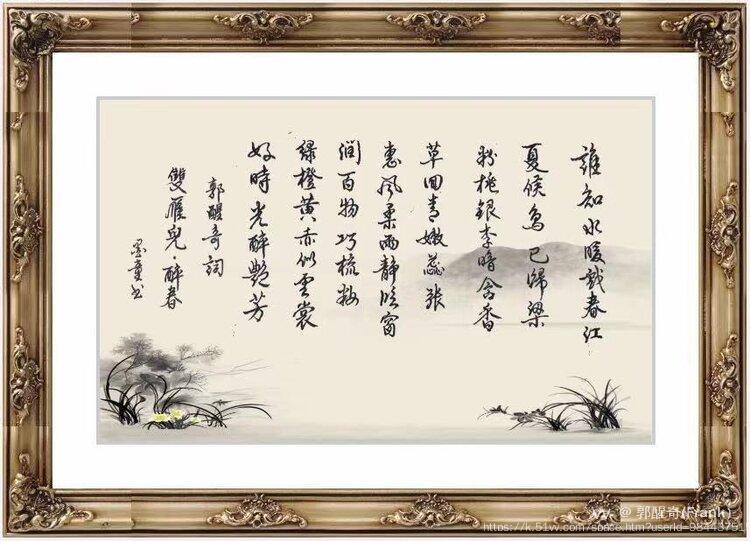 誰知水暖戲春江
夏候鳥已歸梁
粉桃銀李暗含香
草回青嫩蕊張
惠風柔雨靜臨窗
潤百物巧梳妝
綠橙黃赤似雲裳
好時光醉艷芳
郭醒奇詞
雙雁兒·醉春
墨童書
vv @ 郭醒奇(Frank)
https://k.51vv.com/space.htm?userId=98443791